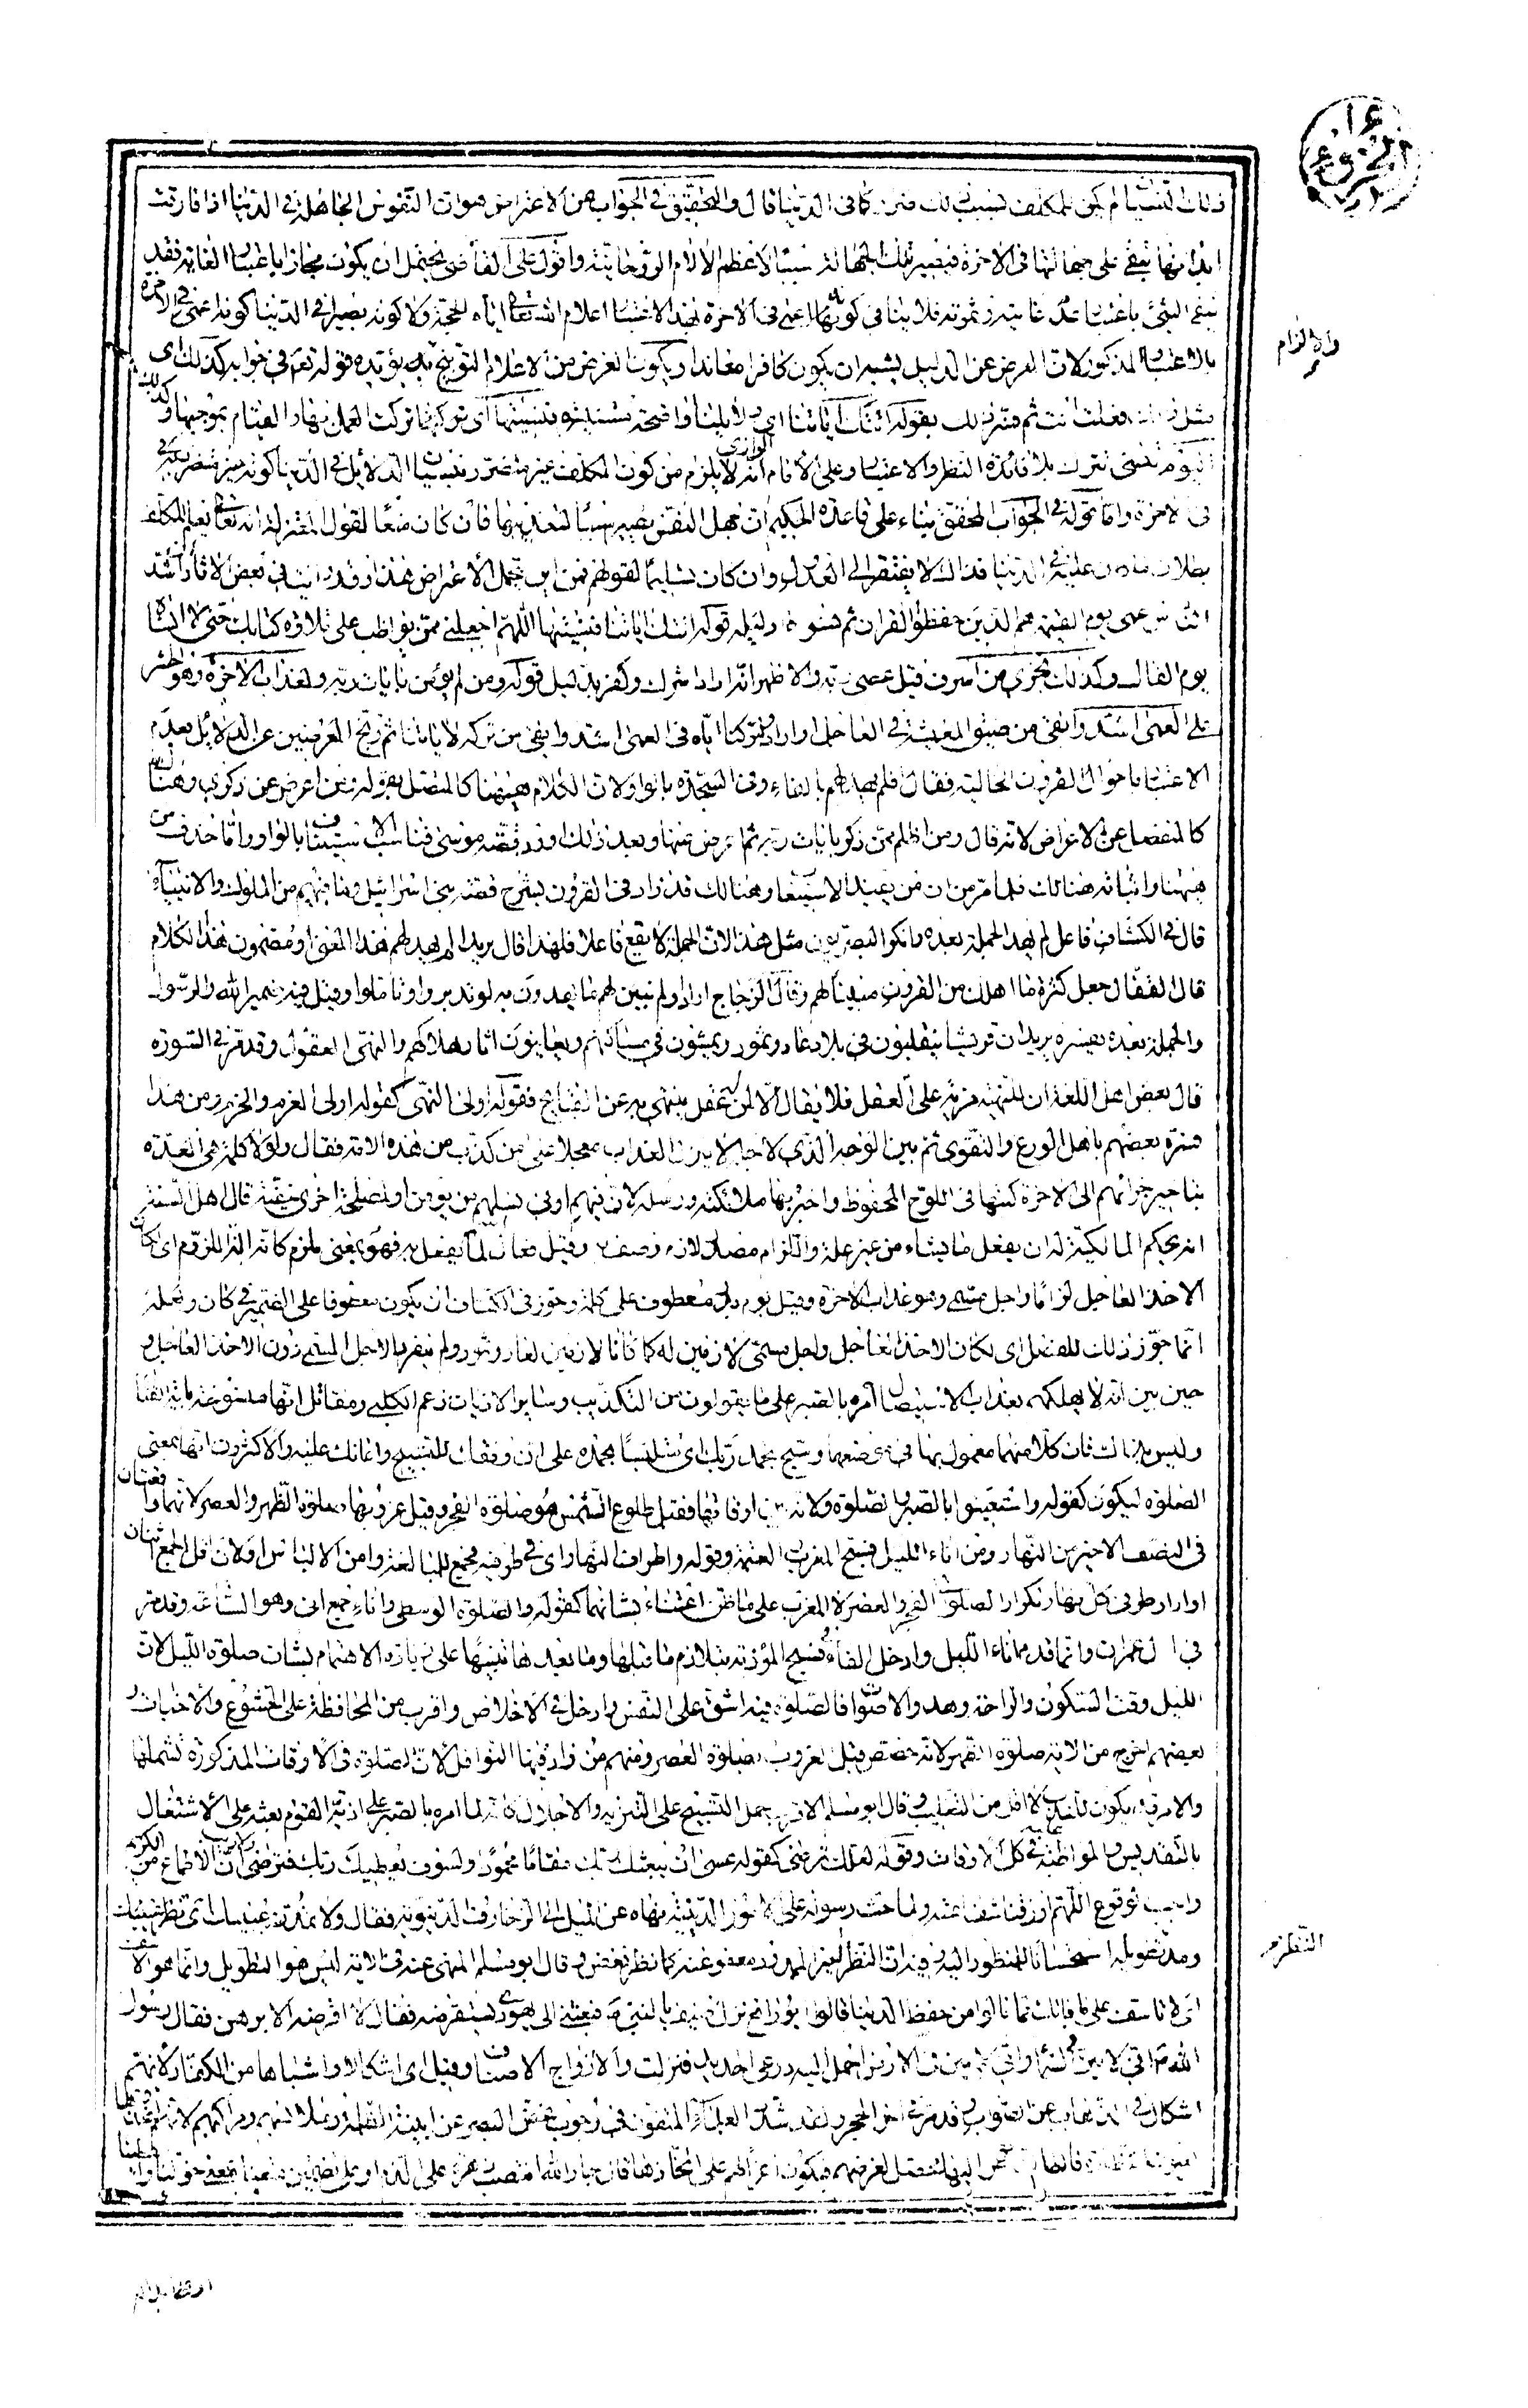 ذلك لنسيانه لم يكن للمكلف بسبب ذلك ضرر كما في الدنيا قال والتحقيق في الجواب عن الاعتراض هو ان النفوس الجاهلة في الدنيا اذا فارقت
ابدانها تبقى على جهالتها في الاخرة فيصير تلك الجهالة سببا لاعظم الالام الروحانية واقول على القاضي يحتمل ان يكون مجازا باعتبار الغاية فقد
ينفى الشئ باعتبار عدم غايته وثمرته فلا ينافي كونه اعمى في الاخرة بهذا الاعتبار اعلام الله تعالى اياه الحجة ولا كونه بصيرا في الدنيا كونه اعمى في الاخرة
بالاعتبار المذكور لان المعرض عن الدليل يشبه ان يكون كافرا معاندا ويكون الغرض من الاعلام التوبيخ يؤيده قوله نعم في جوابه كذلك اى
مثل ذلك فعلت انت ثم فسر ذلك بقوله اتتك اياتنا اى دلايلنا واضحة مستنيرة فنسيتها اى تركتها تركت العمل بها والقيام بموجبها وكذلك
اليوم تنسى تترك بلا فائدة النظر والاعتبار وعلى الامام الرازي انه لا يلزم من كون المكلف غير متضرر بنسيان الدلايل في الدنيا كونه غير متضرر به
في الاخرة واما قوله في الجواب المحقق بناء على قاعدة الحكيم ان جهل النفس يصير سببا لتعذيبها فان كان منعا لقول المعتزلة انه تعالى يعلم المكلف
بطلان ما كان عليه في الدنيا فذاك لا يفتقر الى العدول وان كان تسليما لقولهم فمن اين يحمل الاعتراض هذا وقد رايت في بعض الاثار اشد
الناس عمى يوم القيمة هم الذين حفظوا القران ثم نسوه ودليله قوله اتتك اياتنا فنسيتها اللهم اجعلني ممن يواظب على تلاوة كتابك حتى لا انساه
يوم القاك وكذلك نجزى من اسرف قيل عصى ربه والاظهر انه اراد اشرك وكفر بدليل قوله ومن لم يؤمن بايات ربه ولعذاب الاخرة وهو الحشر
على العمى اشد وابقى من ضيق المعيشة في العاجل او اراد ولتركنا اياه في العمى اشد وابقى من تركه لاياتنا ثم وبخ المعرضين عن الدلايل بعدم
الاعتبار باحوال القرون الخالية فقال افلم يهد لهم بالفاء وفى السجدة بالواو لان الكلام ههنا كالمتصل بقوله ومن اعرض عن ذكري وهناك
كالمنفصل عن الاعراض لانه قال ومن اظلم ممن ذكر بايات ربه ثم اعرض عنها وبعد ذلك اورد قصة موسى فناسب الاستيناف بالواو وانما حذف من
ههنا واثباته هنالك فلما مر من ان من يفيد الاستيعاب وهنالك قد زاد فى القرون بشرح قصة بنى اسرائيل وما فيهم من الملوك والانبياء
قال في الكشاف فاعل لم يهد الجملة بعده وانكر البصريون مثل هذا لان الجملة لا تقع فاعلا فلهذا قال يريد الم يهد لهم هذا المعنى او مضمون هذا الكلام
قال القفال جعل كثرة ما اهلك من القرون مبينا لهم وقال الزجاج اراد ولم نبين لهم ما يهدون به لو تدبروا وتاملوا وقيل فيه ضمير الله والرسول
والجملة بعده يفسره يريد ان قريشا يتقلبون في بلاد عاد وثمود ويمشون في مساكنهم ويعاينون اثار هلاكهم والنهى العقول وقد مر في السورة
قال بعض اهل اللغة ان للنهية مزية على العقل فلا يقال الا لمن له عقل ينتهى به عن القبايح فقوله اولى النهى كقوله اولى العزم والحزم ومن هذا
فسره بعضهم باهل الورع والتقوى ثم بين الوجه الذي لاجله لا ينزل العذاب معجلا على من كذب من هذه الامة فقال ولولا كلمة هي العدة
بتاخير جزائهم الى الاخرة كتبها في اللوح المحفوظ واخبر بها ملائكته ورسله لان فيهم او في نسلهم من يؤمن او لمصلحة اخرى خفية قال اهل السنة
انه يحكم المالكية له ان يفعل ما يشاء من غير علة واللزام مصدر لازم وصف به وقيل فعال لما يفعل به فهو بمعنى ملزم كانه الة اللزوم اى لكان
الاخذ العاجل لزاما واجل مسمى وهو عذاب الاخرة وقيل يوم بدر معطوف على كلمة وجوز في الكشاف ان يكون معطوفا على الضمير في كان ولعله
انما جوز ذلك للفصل اى لكان الاخذ العاجل واجل مسمى لازمين له كما كانا لازمين لعاد وثمود ولم ينفرد الاجل المسمى دون الاخذ العاجل و
حين بين انه لا يهلكهم بعذاب الاستيصال امره بالصبر على ما يقولون من التكذيب وساير الاذيات زعم الكلبي ومقاتل انها منسوخة باية القتال
وليس بذاك فان كلا منهما معمول بها في موضعها وسبح بحمد ربك اى متلبسا بحمده على ان وفقك للتسبيح واعانك عليه والاكثرون انها بمعنى
الصلوة ليكون كقوله واستعينوا بالصبر والصلوة ولانه بين اوقاتها فقبل طلوع الشمس هو صلوة الفجر وقبل غروبها صلوة الظهر والعصر لانهما واقعتان
في النصف الاخير من النهار ومن اناء الليل فسبح المغرب والعتمة وقوله واطراف النهار اى في طرفيه فجمع للمبالغة وامن الالباس اولان اقل الجمع اثنان
او اراد طرفى كل نهار تكرار الصلوتى الفجر والعصر لا المغرب على ما ظن اعتناء بشانهما كقوله والصلوة الوسطى واناء جمع انى وهو الساعة وقد مر
في ال عمران وانما قدم اناء الليل وادخل الفاء في فسبح المؤذنة بتلازم ما قبلها وما بعدها تنبيها على زيادة الاهتمام بشان صلوة الليل لان
الليل وقت السكون والراحة وهدو الاصوات فالصلوة فيه اشق على النفس وادخل في الاخلاص واقرب من المحافظة على الخشوع والاخبات و
بعضهم اخرج من الاية صلوة الظهر لانه خصص قبل الغروب بصلوة العصر ومنهم من زاد فيها النوافل لان الصلوة في الاوقات المذكورة تشملها
والامر قد يكون للندب لا اقل من التغليب وقال ابو مسلم الاقرب حمل التسبيح على التنزيه والاجلال كانه لما امره بالصبر على اذية القوم بعثه على الاشتغال
بالتقديس والمواظبة في كل الاوقات وقوله لعلك ترضى كقوله عسى ان يبعثك ربك مقاما محمودا ولسوف يعطيك ربك فترضى ولا ريب ان الاطماع من الكريم
واجب الوقوع اللهم ارزقنا شفاعته ولما حث رسوله على الامور الدينية نهاه عن الميل الى الزخارف الدنيوية فقال ولا تمدن عينيك اى نظر عينيك
ومده تطويله استحسانا للمنظور اليه وفيه ان النظر الغير الممدود معفو عنه كما نظر فغض وقال ابو مسلم المنهى عنه في الاية ليس هو التطويل وانما هو الاسف
اى لا تاسف على ما فاتك مما نالوا من حظ الدنيا قال ابو رافع نزل ضيف بالنبى ص فبعثنى الى يهودى يستقرضه فقال لا اقرضه الا برهن فقال رسول
الله ص انى لامين في السماء وانى لامين في الارض احمل اليه درعى الحديد فنزلت والازواج الاصناف وقيل اى اشكالا واشباها من الكفار لانهم
اشكال في الذهاب عن الصواب وقد مر في اخر الحجر ولقد شدد العلماء المتقون في وجوب غض البصر عن ابنية الظلمة وملابسهم ومراكبهم لانهم
والالزام
النظر